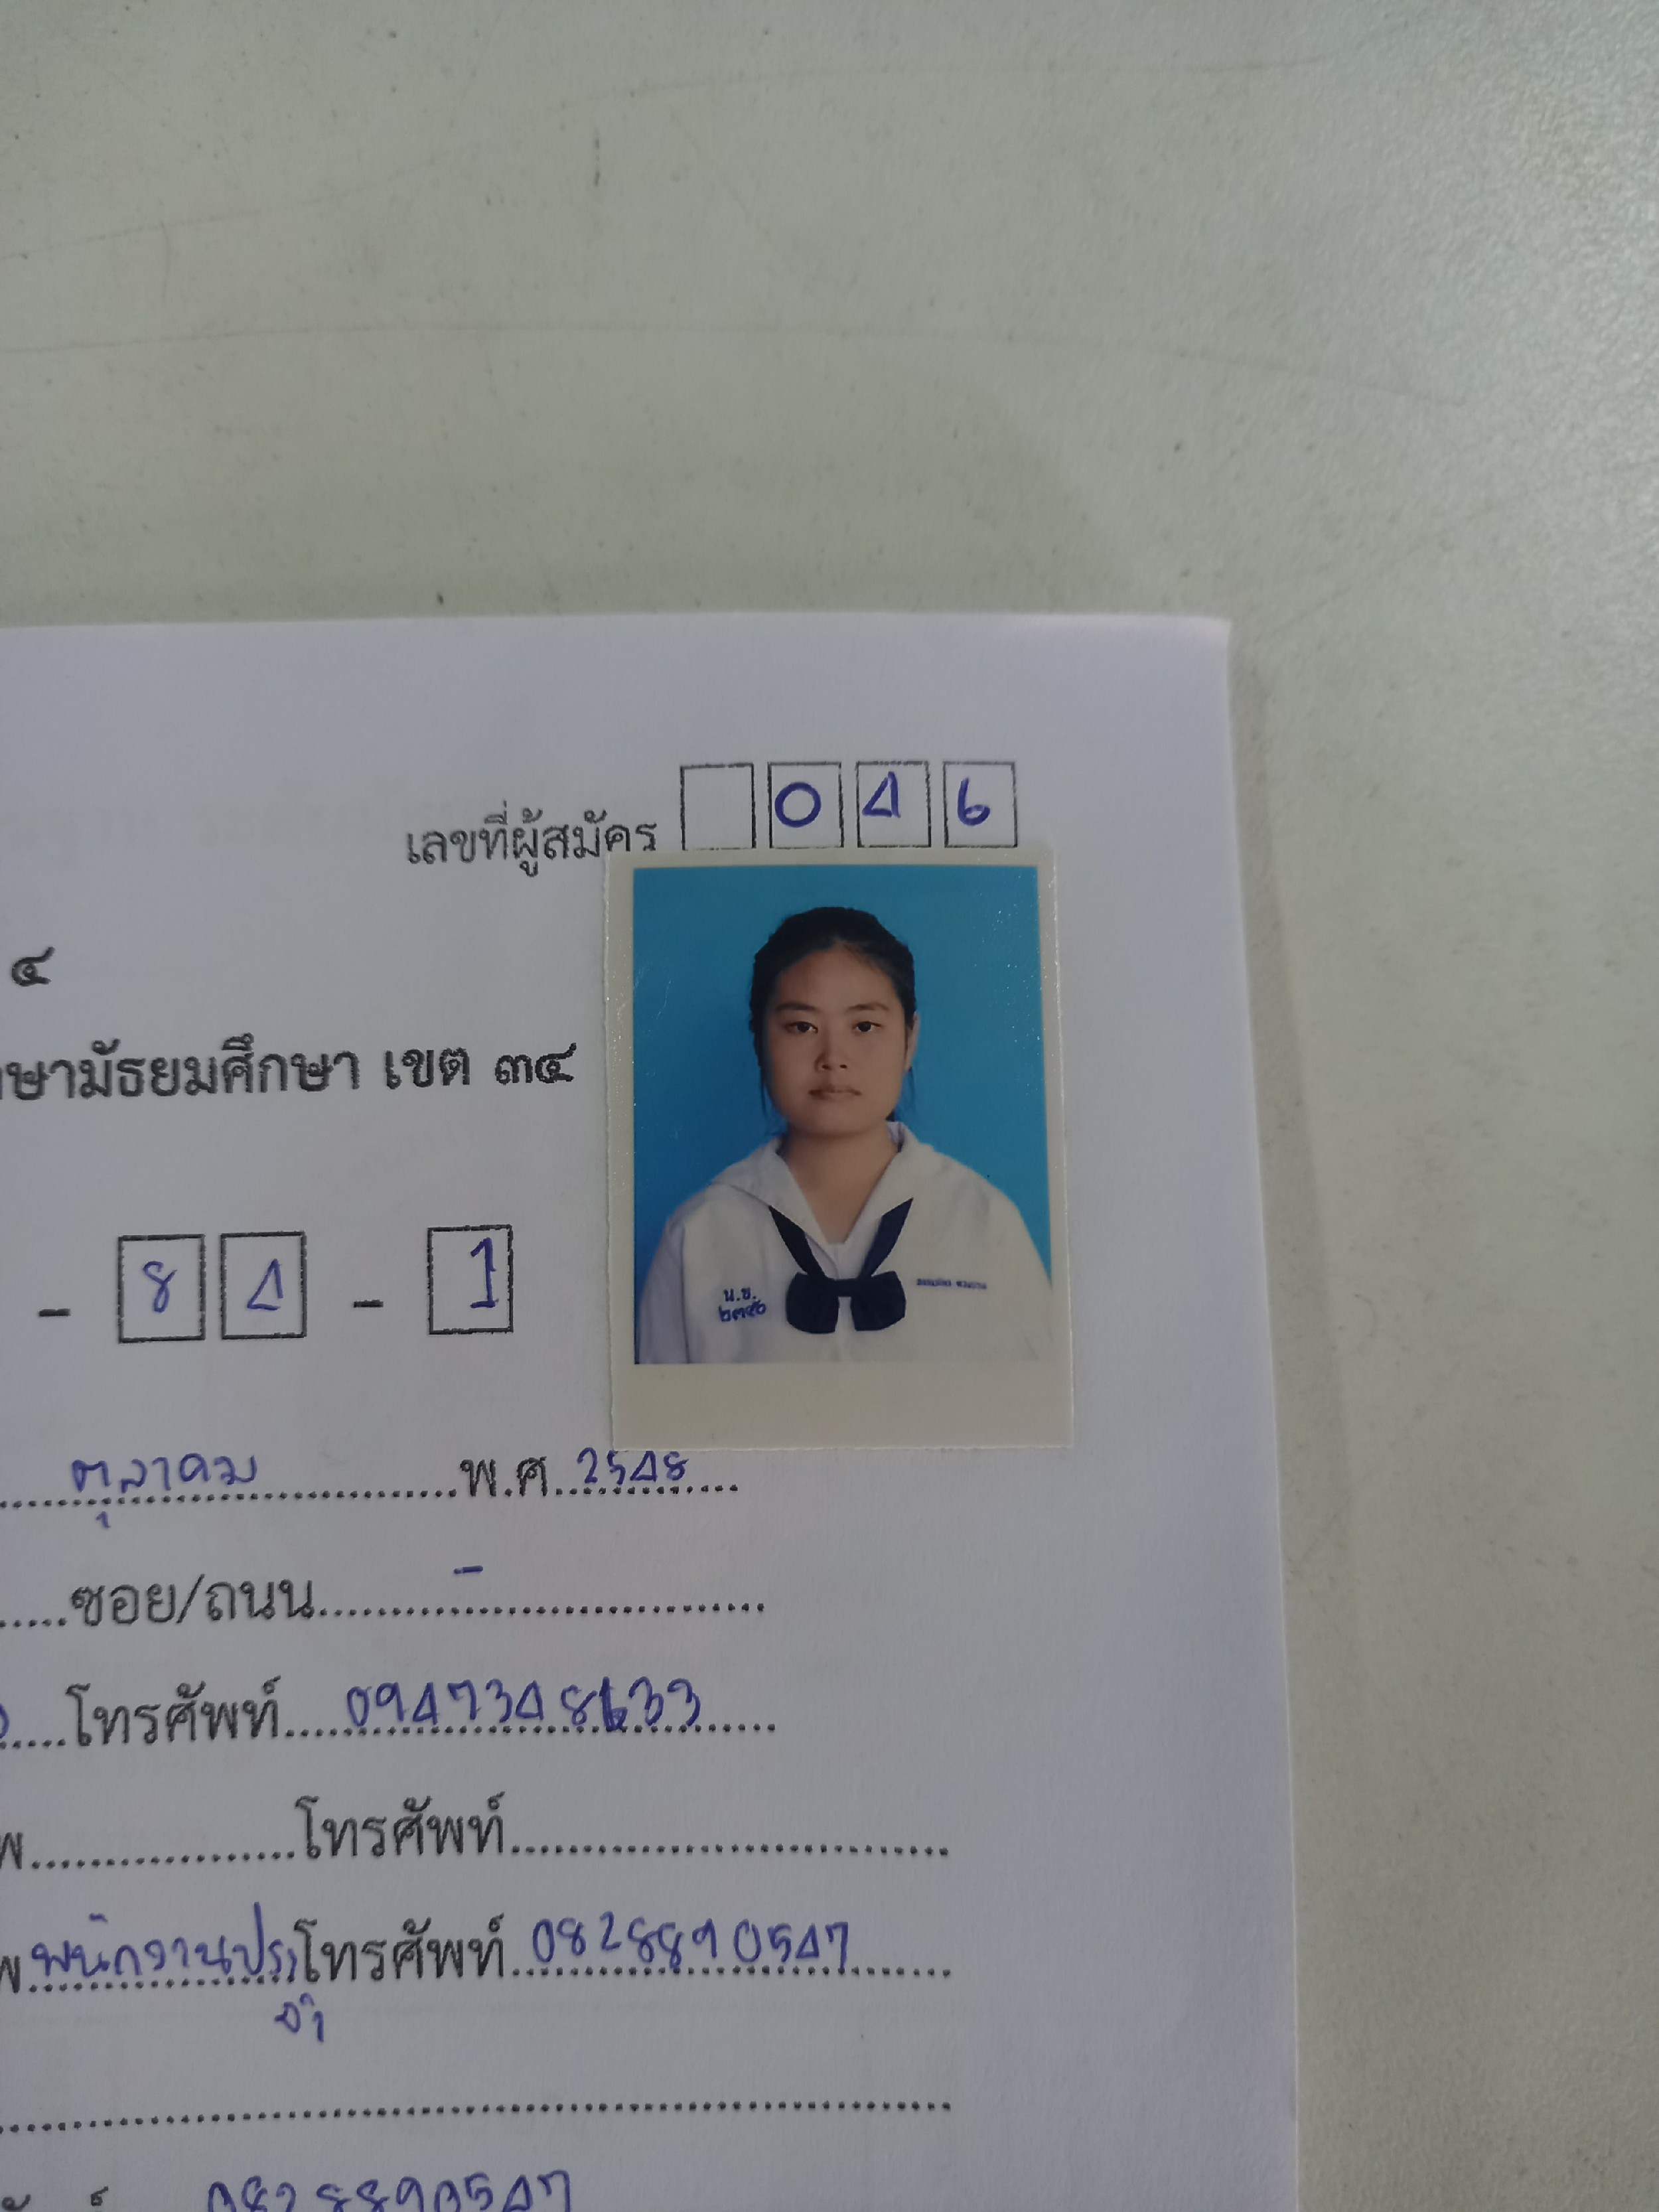 เลขที่ผู้สมัคร 0 4 6
๔
ษามัธยมศึกษา เขต ๓๔
- 8 4 - 1
น.ช.
๒๓๕๖
ตุลาคม พ.ศ. 2548
ซอย/ถนน -
โทรศัพท์ 0947348633
โทรศัพท์
พนักงานประจำ โทรศัพท์ 0828890547
0828890547